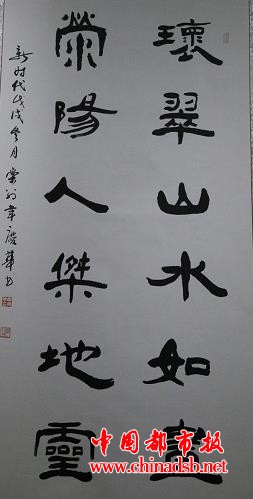 環翠山水如畫
滎陽人傑地靈
中国都市报
www.chinadsb.net